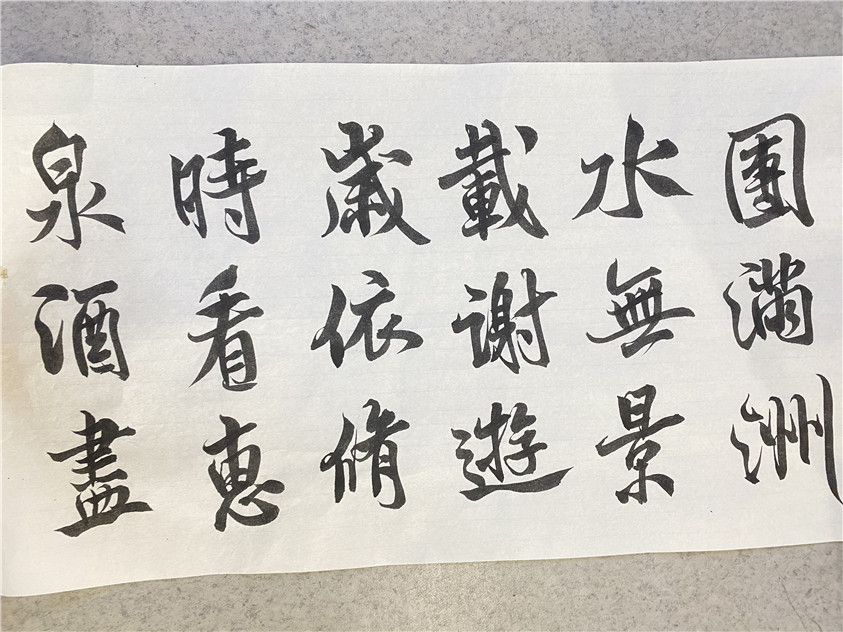 團滿洲
水無景
載謝遊
歲依脩
時看惠
泉酒盡